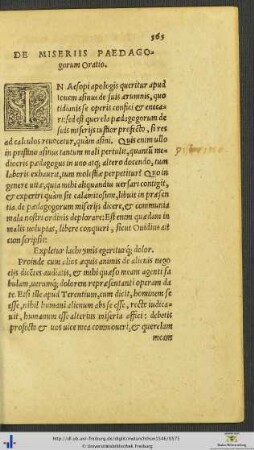 363
DE MISERIIS PAEDAGO-
gorum Oratio.
IN Aesopi apologis queritur apud
Iouem asinus de suis aerumnis, quo
tidianis se operis confici & eneca/
ri: sed est querela paedagogorum de
suis miserijs iustior profecto, si res
ad calculos reuocetur, quàm asini. Quis enim ullo
in pistrino asinus tantum mali pertulit, quantū me
diocris paedagogus in uno atq; altero docendo, tum
laboris exhaurit, tum molestiae perpetitur? Quo in
genere uitae, quia mihi aliquandiu uersari contigit,
& experiri quàm sit calamitosum, libuit in praesen
tia de paedagogorum miserijs dicere, & communia
mala nostri ordinis deplorare: Est enim quaedam in
malis uoluptas, libere conqueri, sicut Ouidius ait
cum scripsit:
Expletur lachrymis egeriturq́; dolor.
Proinde cum alios aequis animis de alienis nego
cijs dicentes audiatis, & mihi quaeso meam agenti fa
bulam, uerumq́; dolorem repraesentanti operam da
te. Etsi ille apud Terentium, cum dicit, hominem se
esse, nihil humani alienum abs se esse, recte iudica-
uit, humanum esse alterius miseria affici: debetis
profecto & uos uice mea commoueri, & querelam
meam
http://dl.ub.uni-freiburg.de/diglit/melanchthon1546/0371
© Universitätsbibliothek Freiburg